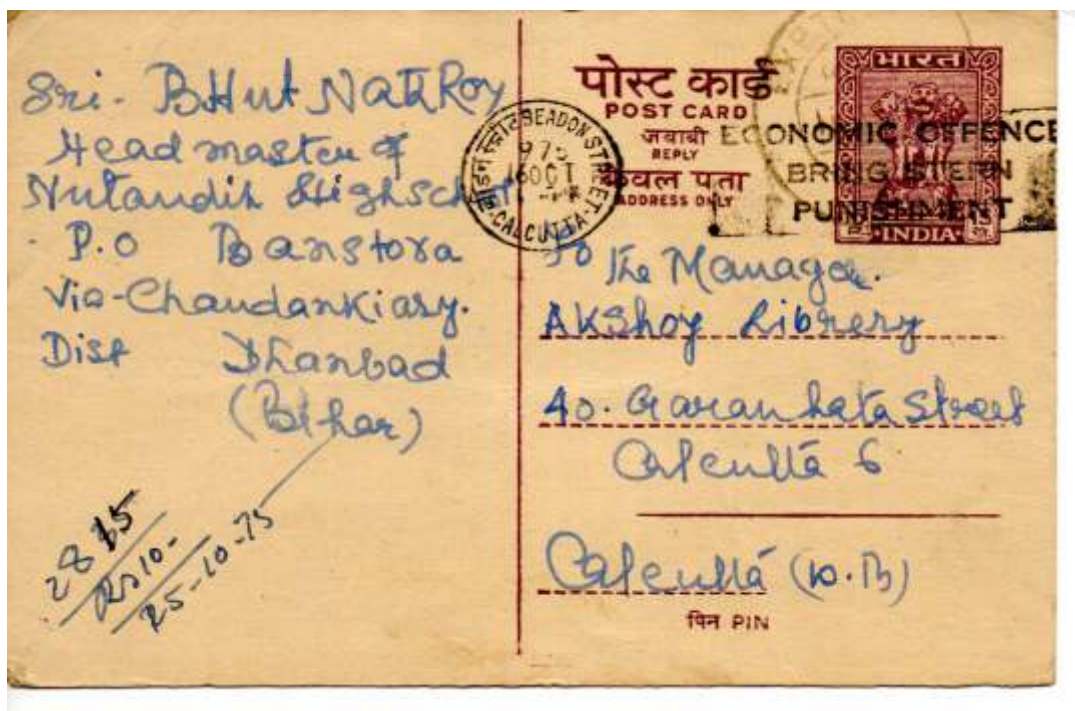 Sri. BHut Nath Roy
Headmaster of
Nutandih High School
P.O Banstora
Via-Chandankiary.
Dist Dhanbad
(Bihar)
28
Rs 10-
25-10-75
पोस्ट कार्ड
POST CARD
जवाबी
REPLY
केवल पता
ADDRESS ONLY
भारत
INDIA
BEADON STREET
CALCUTTA
16 OCT
ECONOMIC OFFENCE
BRING STERN
PUNISHMENT
To
The Manager.
AKShoy Librery
40. Garanhata Street
Calcutta 6
Calcutta (W.B)
पिन PIN